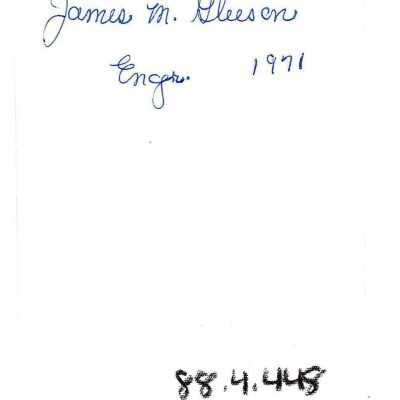 James M. Gleeson
Engr. 1971
88.4.448